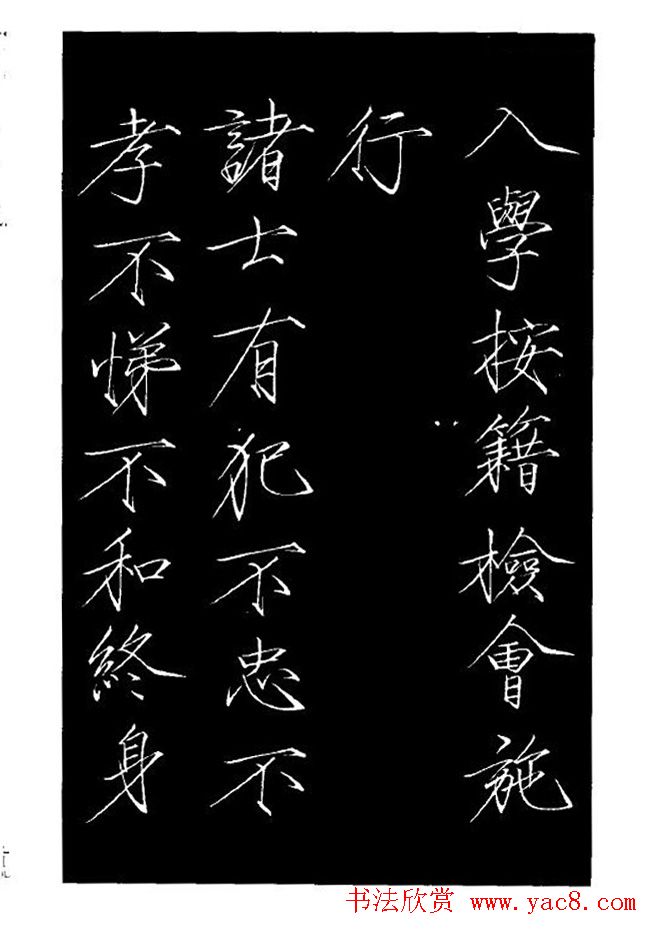 入學按籍檢會施
行
諸士有犯不忠不
孝不悌不和終身
书法欣赏 www.yac8.com